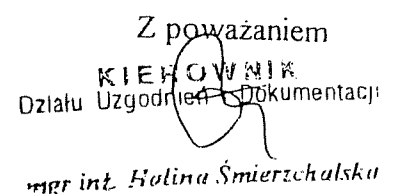 Z poważaniem
KIEROWNIK
Działu Uzgodnień Dokumentacji
mgr inż. Halina Śmierzchalska